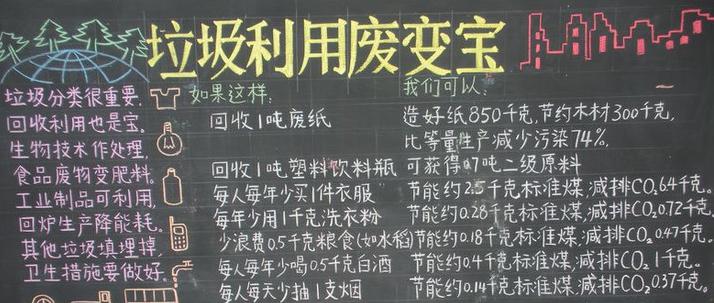 垃圾利用废变宝
垃圾分类很重要,
回收利用也是宝。
生物技术作处理,
食品废物变肥料。
工业制品可利用,
回炉生产降能耗。
其他垃圾填埋掉,
卫生措施要做好。
如果这样:
我们可以:
回收1吨废纸
造好纸850千克,节约木材300千克,
比等量生产减少污染74%,
回收1吨塑料饮料瓶
可获得0.7吨二级原料
每人每年少买1件衣服
节能约2.5千克标准煤,减排CO₂6.4千克。
每年少用1千克洗衣粉
节能约0.28千克标准煤,减排CO₂0.72千克。
少浪费0.5千克粮食(如水稻)
节能约0.18千克标准煤,减排CO₂0.47千克。
每人每年少喝0.5千克白酒
节能约0.4千克标准煤,减排CO₂1千克。
每人每天少抽1支烟
节能约0.14千克标准煤,减排CO₂0.37千克。